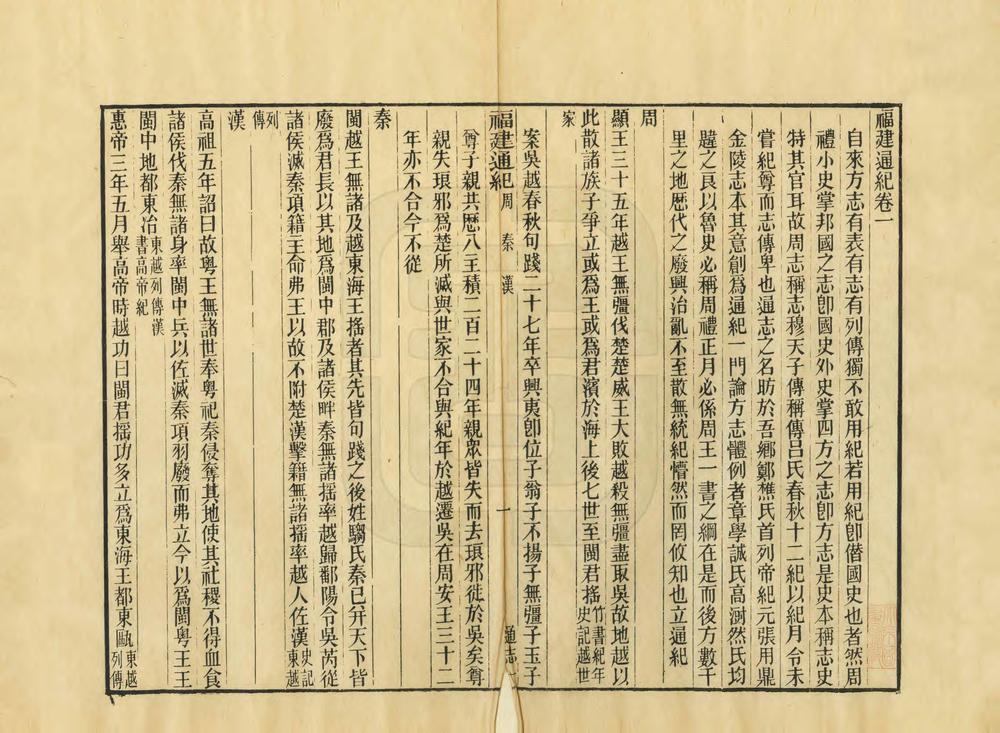 福建通紀卷一
自來方志有表有志有列傳獨不敢用紀若用紀卽僭國史也者然周
禮小史掌邦國之志卽國史外史掌四方之志卽方志是史本稱志史
特其官耳故周志稱志穆天子傳稱傳呂氏春秋十二紀以紀月令未
嘗紀尊而志傳卑也通志之名昉於吾鄉鄭樵氏首列帝紀元張用鼎
金陵志本其意創爲通紀一門論方志體例者章學誠氏高澍然氏均
韙之良以魯史必稱周禮正月必係周王一書之綱在是而後方數千
里之地歷代之廢興治亂不至散無統紀懵然而罔攸知也立通紀
周
顯王三十五年越王無彊伐楚楚威王大敗越殺無彊盡取吳故地越以
此散諸族子爭立或爲王或爲君濱於海上後七世至閩君搖竹書紀年史記越世
家
案吳越春秋句踐二十七年卒興夷卽位子翁子不揚子無彊子玉子
福建通紀 周 秦 漢 一 通志一
尊子親共歷八主積二百二十四年親眾皆失而去琅邪徙於吳矣尊
親失琅邪爲楚所滅與世家不合與紀年於越遷吳在周安王三十二
年亦不合今不從
秦
閩越王無諸及越東海王搖者其先皆句踐之後姓騶氏秦已并天下皆
廢爲君長以其地爲閩中郡及諸侯畔秦無諸搖率越歸鄱陽令吳芮從
諸侯滅秦項籍主命弗王以故不附楚漢擊籍無諸搖率越人佐漢史記東越
列傳
漢
高祖五年詔曰故粤王無諸世奉粤祀秦侵奪其地使其社稷不得血食
諸侯伐秦無諸身率閩中兵以佐滅秦項羽廢而弗立今以爲閩粤王王
閩中地都東冶東越列傳漢書高帝紀
惠帝三年五月舉高帝時越功曰閩君搖功多立爲東海王都東甌東越列傳